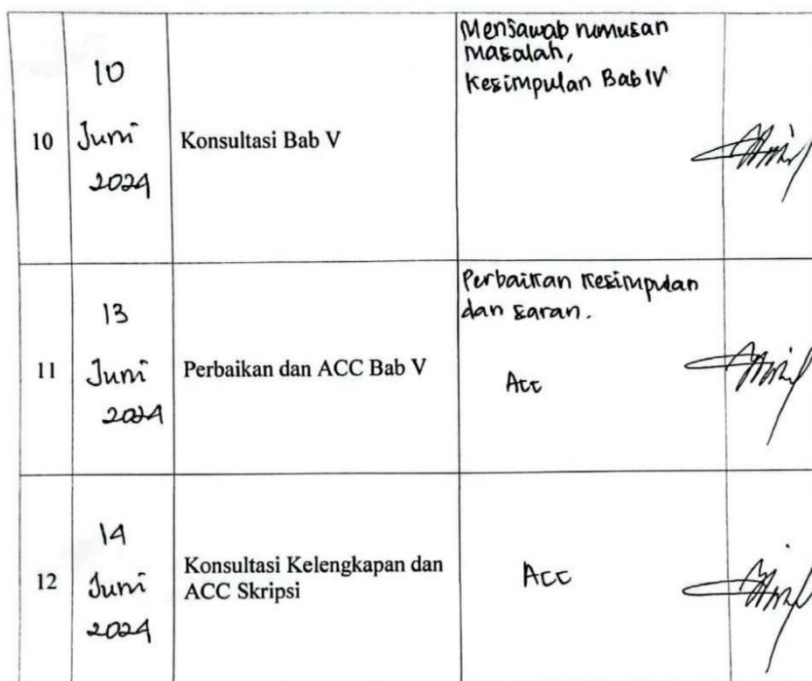 10
10
Juni
2024
Konsultasi Bab V
Menjawab rumusan
masalah,
Kesimpulan Bab IV
11
13
Juni
2024
Perbaikan dan ACC Bab V
Perbaikan kesimpulan
dan saran.
Acc
12
14
Juni
2024
Konsultasi Kelengkapan dan
ACC Skripsi
Acc